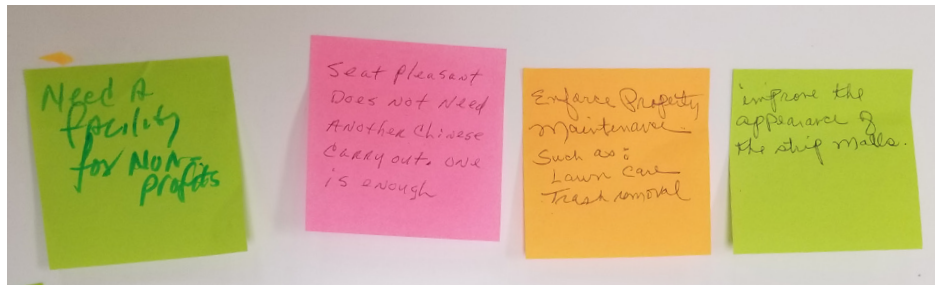 Need A
facility
for NON-
profits
Seat Pleasant
Does Not Need
Another Chinese
Carry out. One
is enough
Enforce Property
Maintenance
Such as:
Lawn Care
Trash removal
improve the
appearance of
the strip malls.